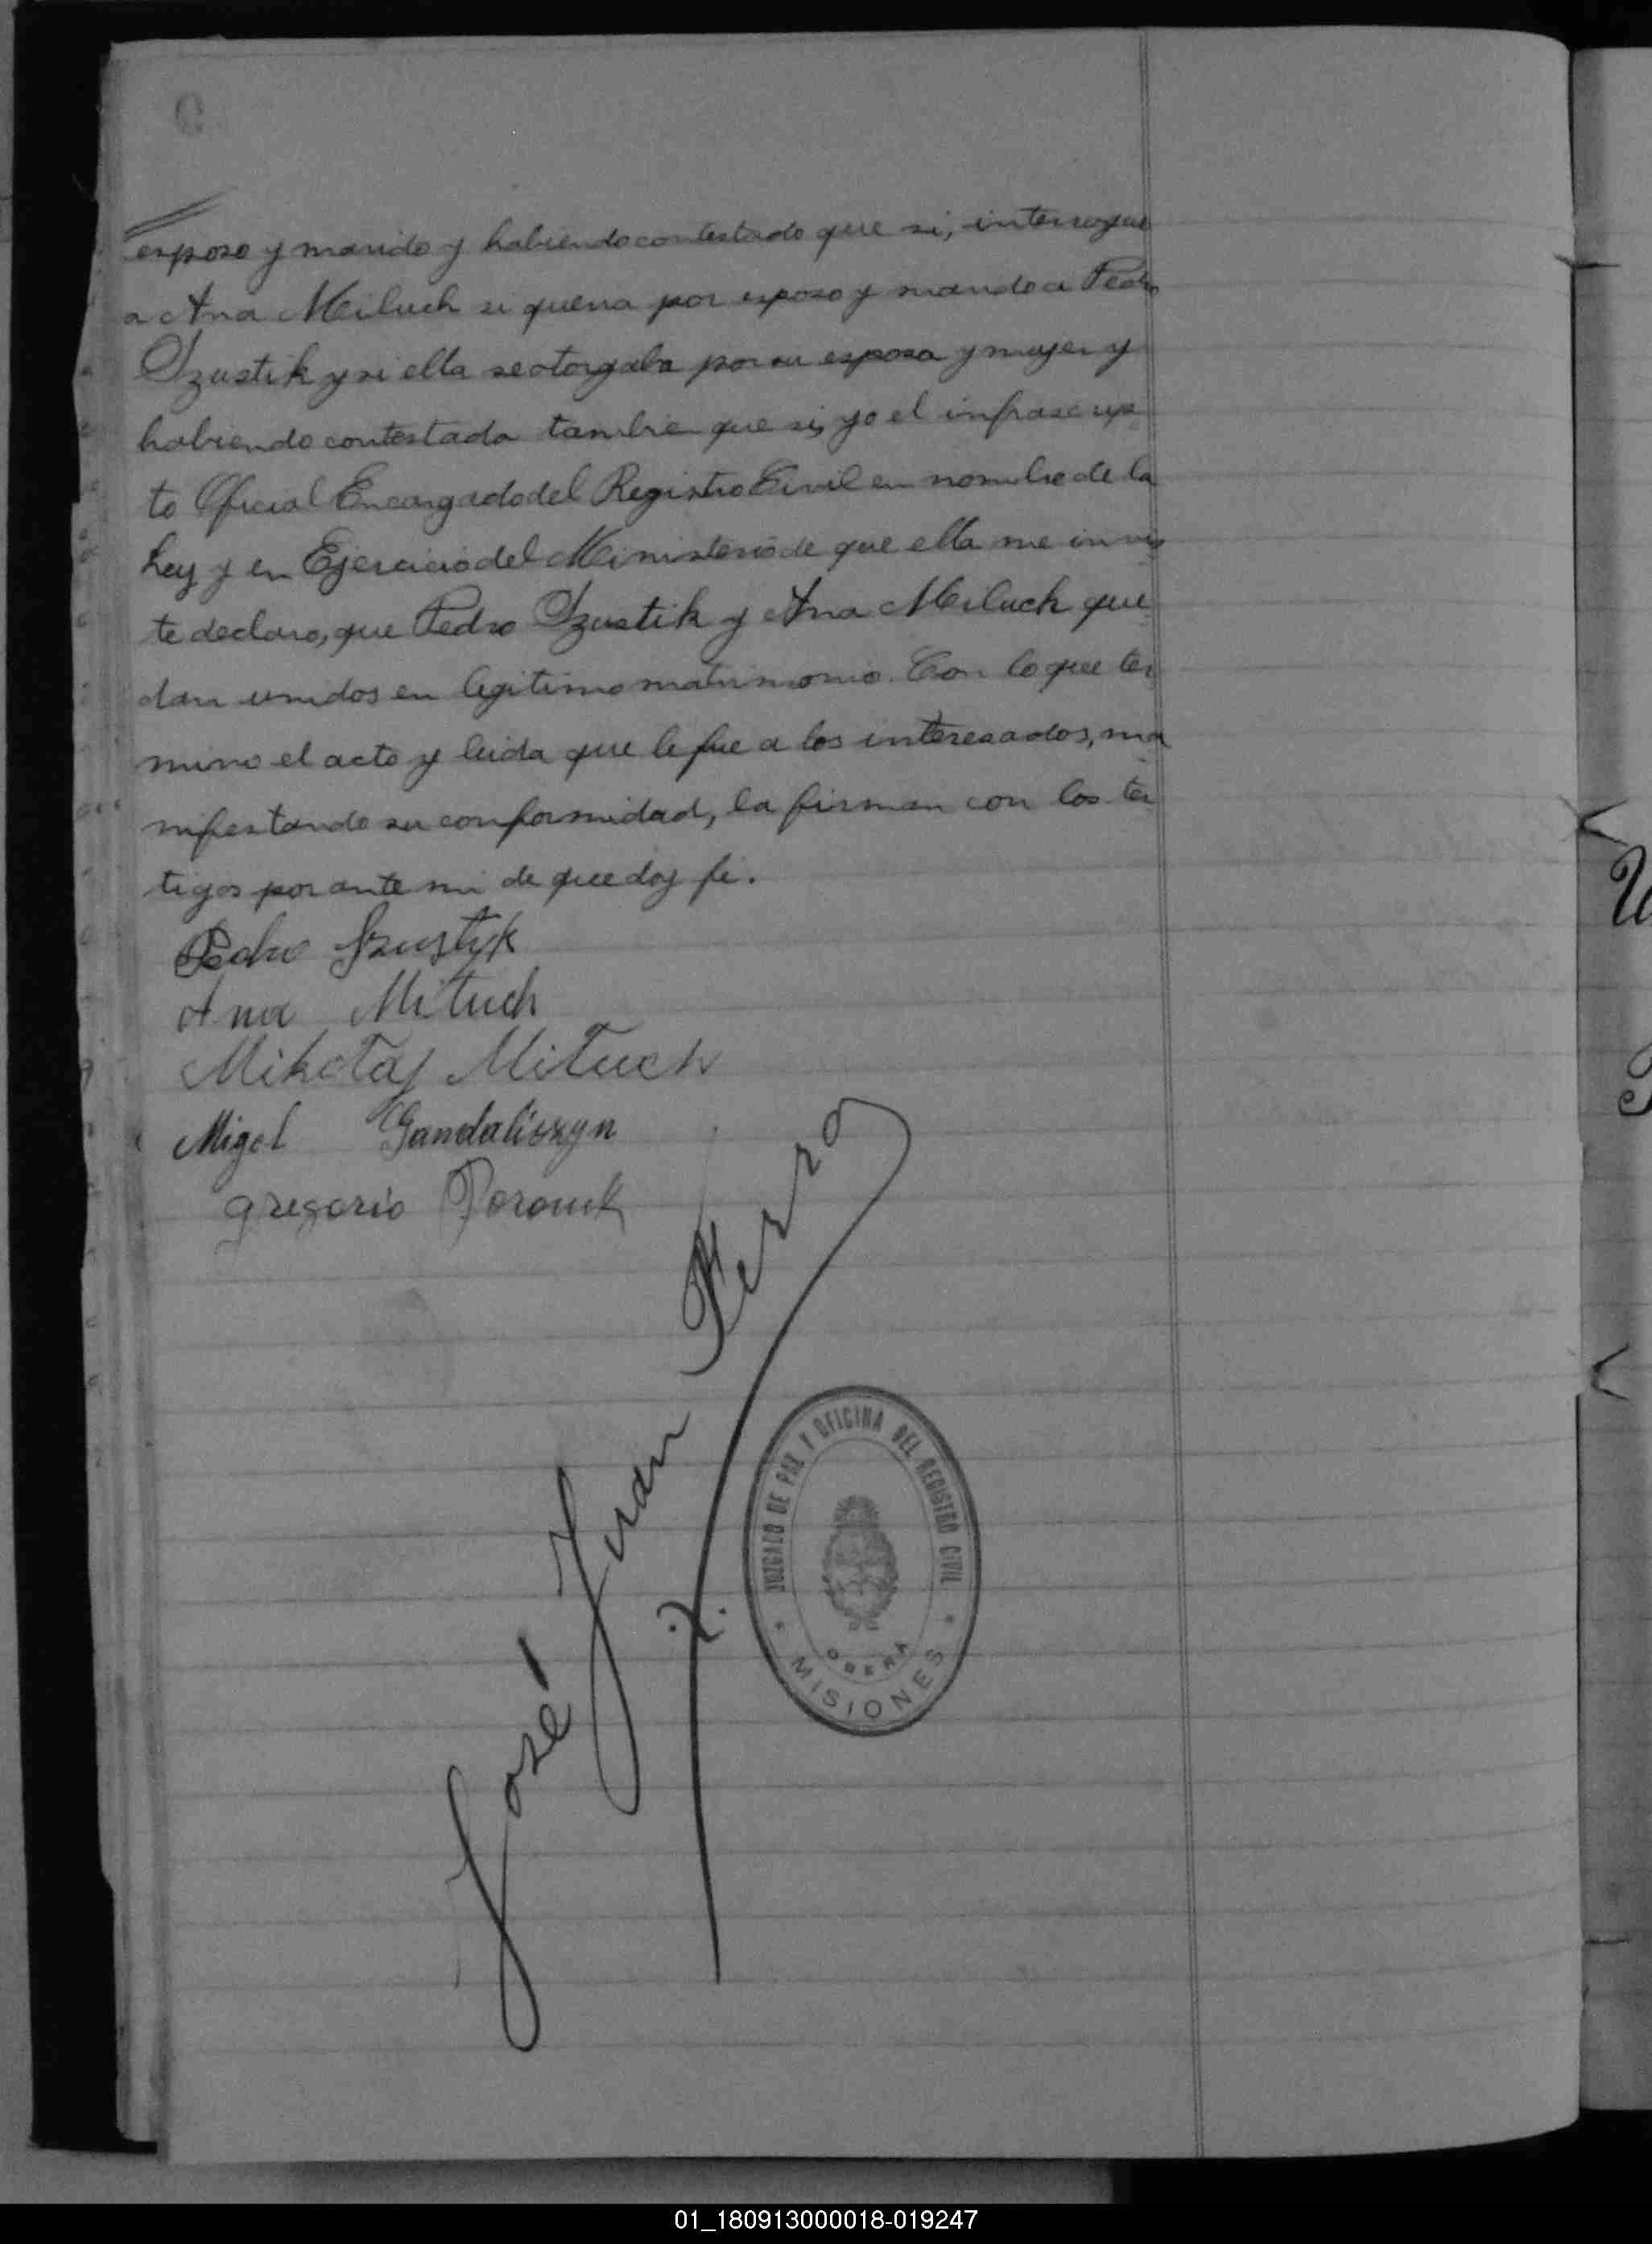 esposo y marido y habiendo contestado que si, interrogue
a Ana Miluch si queria por esposo y marido a Pedro
Szustik y si ella se otorgaba por su esposa y mujer y
habiendo contestada tambie que si, yo el infrascrip
to Oficial Encargado del Registro Civil en nombre de la
Ley y en Ejercicio del Ministerio de que ella me invis
te declaro, que Pedro Szustik y Ana Miluch que
dan unidos en legitimo matrimonio. Con lo que ter
mino el acto y leida que le fue a los interesados, ma
nifestando su conformidad, la firman con los tes
tigos por ante mi de que doy fé.
Pedro Szustyk
Ana Miłuch
Mikołaj Miłuch
Migel
gregorio
José Juan Ferro
JUZGADO DE PAZ Y OFICINA DEL REGISTRO CIVIL
OBERA
MISIONES
01_180913000018-019247